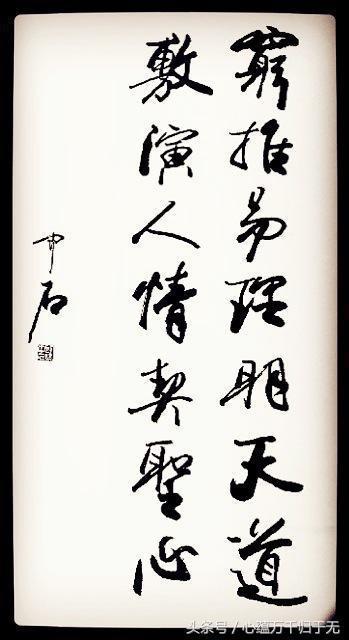 窮推易理明天道
敷演人情契聖心
中石
头条号／心蕴万千归于无